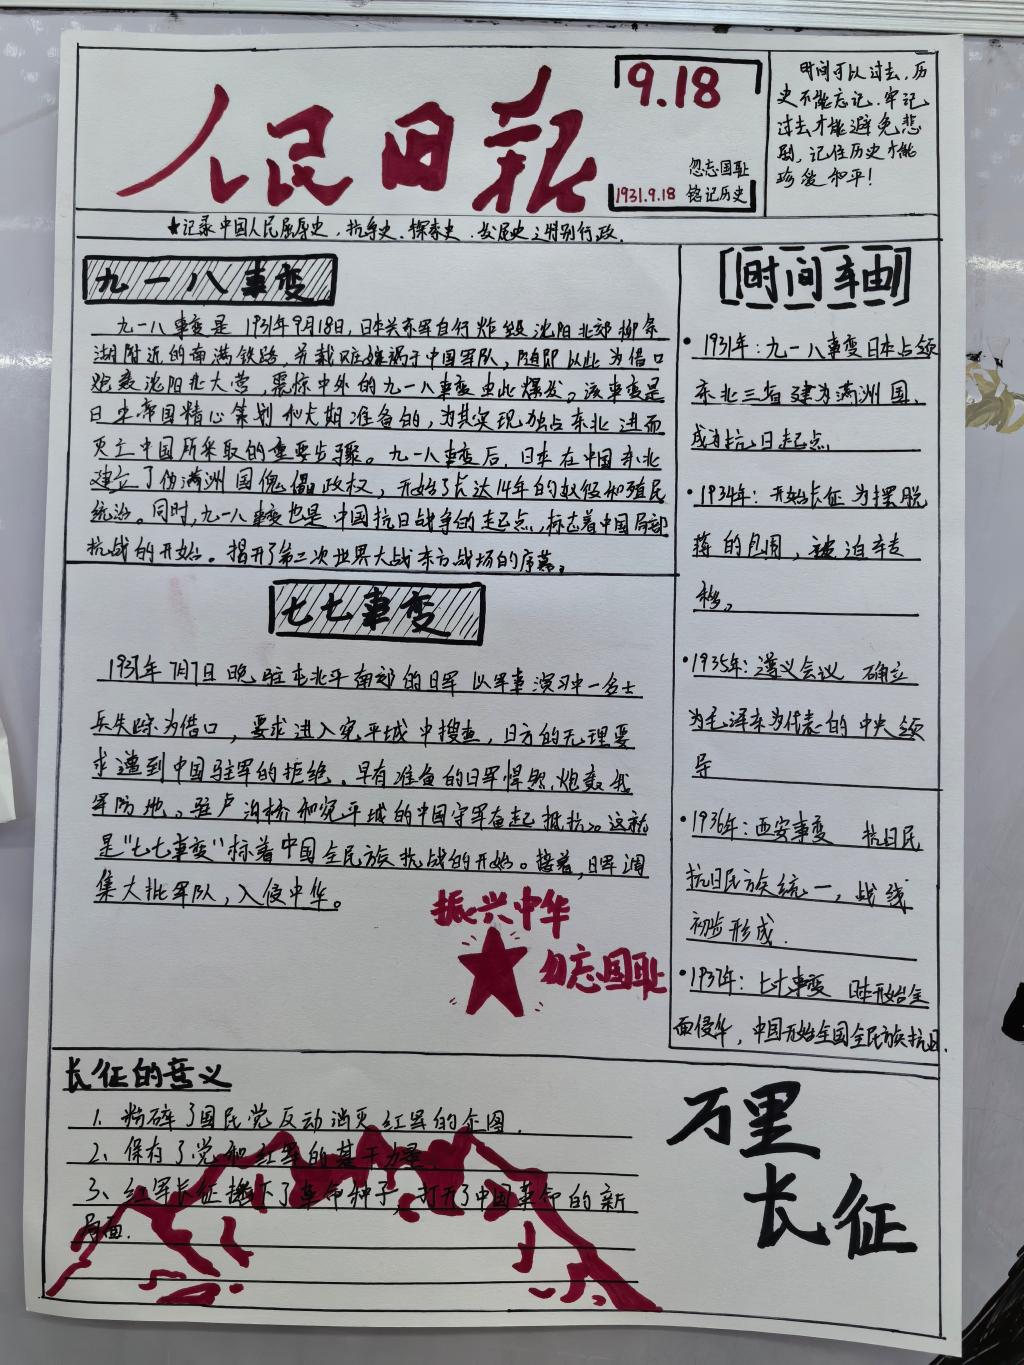 人民日报
9.18
勿忘国耻
1931.9.18 铭记历史
时间可以过去,历
史不能忘记.牢记
过去才能避免悲
剧,记住历史才能
珍爱和平!
★记录中国人民屈辱史、抗争史、探索史、发展史之特别行政.
九一八事变
九一八事变是1931年9月18日,日本关东军自行炸毁沈阳北郊柳条
湖附近的南满铁路,并栽赃嫁祸于中国军队,随即以此为借口
炮轰沈阳北大营,震惊中外的九一八事变由此爆发。该事变是
日本帝国精心策划和长期准备的,为其实现独占东北进而
灭亡中国所采取的重要步骤。九一八事变后,日本在中国东北
建立了伪满洲国傀儡政权,开始了长达14年的奴役和殖民
统治。同时,九一八事变也是中国抗日战争的起点,标志着中国局部
抗战的开始。揭开了第二次世界大战东方战场的序幕。
七七事变
1937年7月7日晚,驻在北平南郊的日军以军事演习中一名士
兵失踪为借口,要求进入宛平城中搜查,日方的无理要
求遭到中国驻军的拒绝.早有准备的日军悍然炮轰我
军防地。驻卢沟桥和宛平城的中国守军奋起抵抗。这就
是"七七事变"标着中国全民族抗战的开始。接着,日军调
集大批军队,入侵中华。
振兴中华
勿忘国耻
时间车由
•1931年:九一八事变日本占领
东北三省建为满洲国、
成为抗日起点
•1934年:开始长征为摆脱
蒋的包围,被迫转
移。
•1935年:遵义会议 确立
为毛泽东为代表的中央领
导
•1936年:西安事变 抗日民
抗日民族统一,战线
初步形成.
•1937年:七七事变 日本开始全
面侵华,中国开始全国全民族抗日.
长征的意义
1、粉碎了国民党反动消灭红军的企图.
2、保存了党和红军的基干力量.
3、红军长征播下了革命种子,打开了中国革命的新
局面.
万里
长征